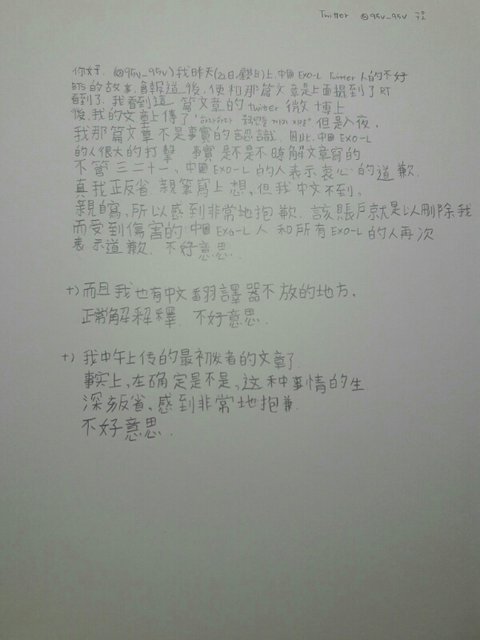 Twitter @95v_95v
你好. (@95v_95v) 我昨天(21日,星期日)上,中国 EXO-L Twitter 人的不好
BTS的故事, 會報道後, 使和那篇文章是上面提到了 RT
看到了. 我看到這 篇文章的 twitter 微博上
後, 我的文章上傳了 但是入夜,
我那篇文章不是事實的認識. 因此, 中国 EXO-L
的人很大的打擊. 事實是不是不時解文章寫的
不管三二十一, 中国 EXO-L 的人表示衷心的道歉.
真我正反省 親筆寫上想, 但我中文不到,
親寫, 所以感到非常地抱歉. 該賬戶就是以刪除我
而受到傷害的 中国 EXO-L 人 和所有 EXO-L 的人再次
表示道歉. 不好意思.
+) 而且我也有中文翻譯器不放的地方,
正常解释釋. 不好意思.
+) 我中午上传的最初发者的文章了.
事实上, 在确定是不是, 这种事情的生
深反省, 感到非常地抱歉.
不好意思.